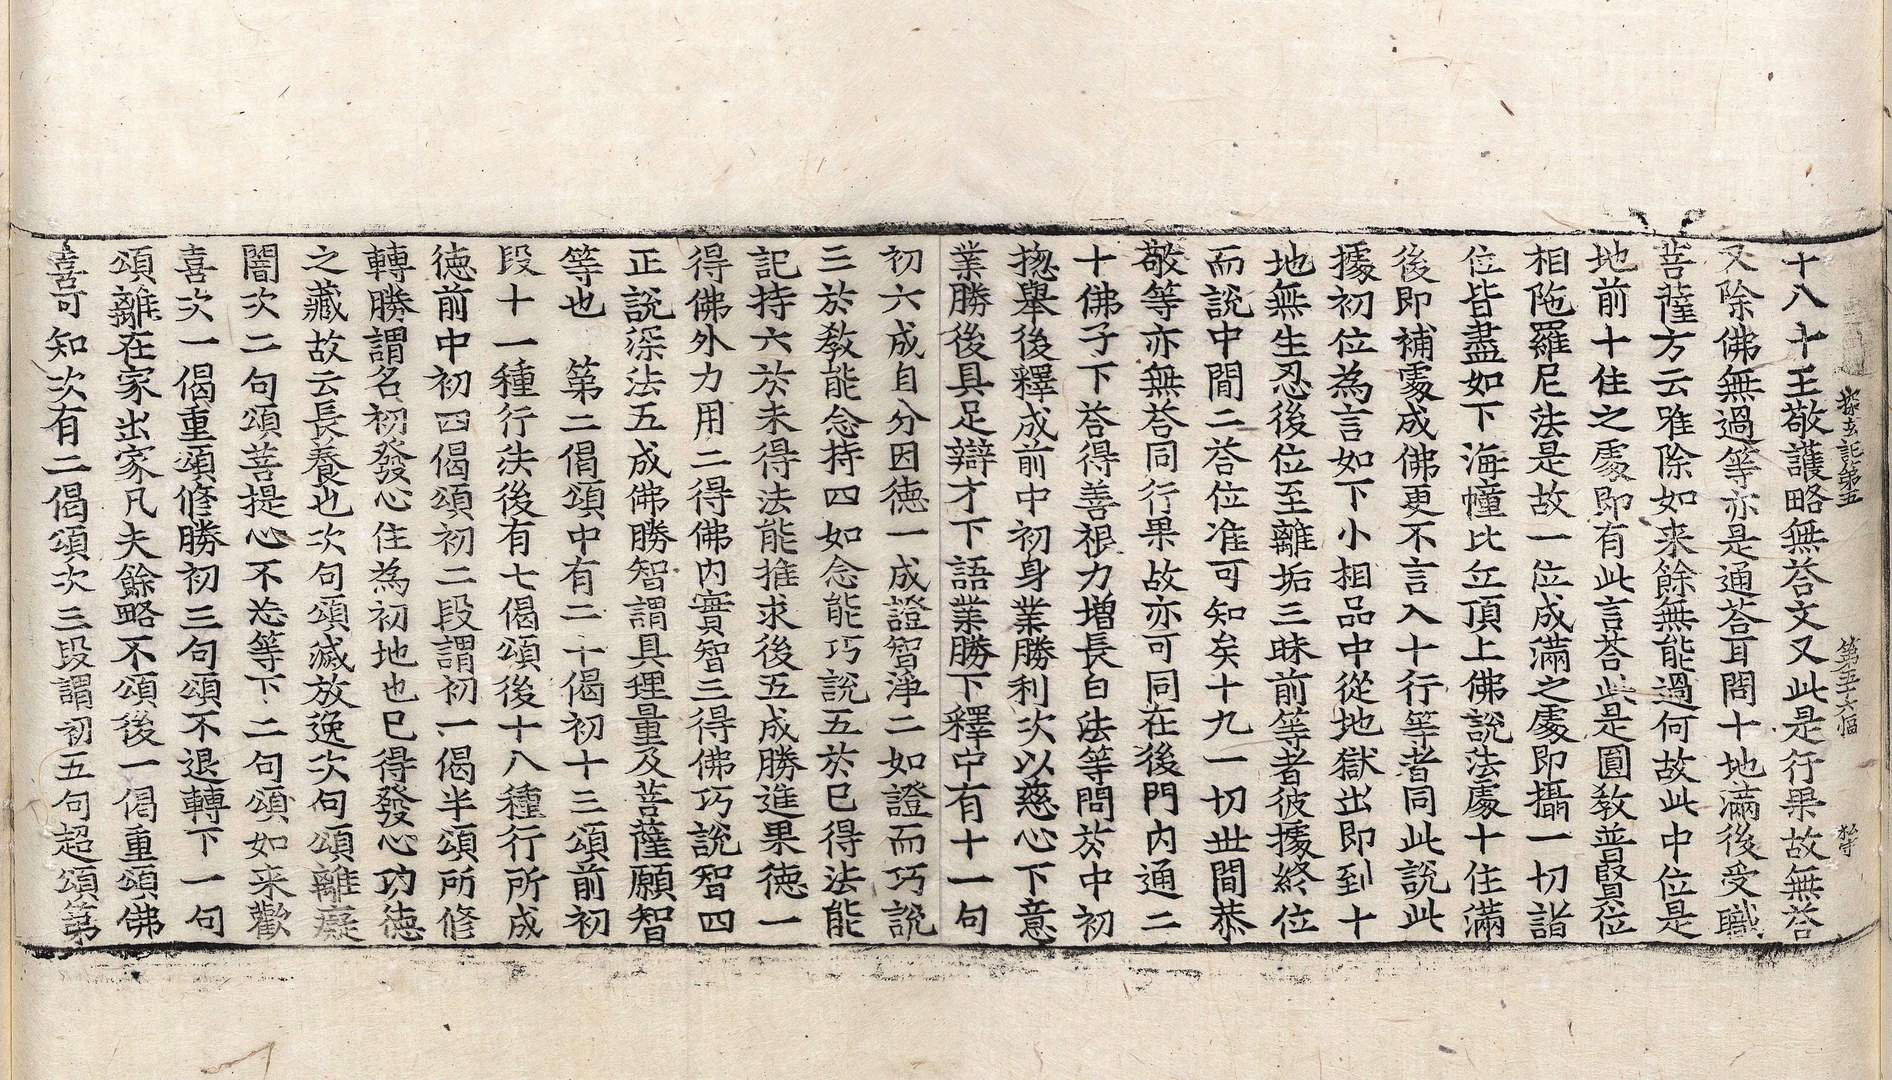 探玄記第五 第五十六幅
十八十王敬護略無荅文又此是行果故無荅
又除佛無過等亦是通荅耳問十地滿後受職
菩薩方云雅除如来餘無能過何故此中位是
地前十住之處即有此言荅此是圓教普賢位
相陁羅尼法是故一位成滿之處即攝一切諸
位皆盡如下海幢比丘頂上佛說法處十住滿
後即補處成佛更不言入十行等者同此說此
據初位為言如下小相品中從地獄出即到十
地無生忍後位至離垢三昧前等者彼據終位
而說中間二荅位准可知矣十九一切世間恭
敬等亦無荅同行果故亦可同在後門內通二
十佛子下荅得善根力增長白法等問於中初
揔舉後釋成前中初身業勝利次以慈心下意
業勝後具足辯才下語業勝下釋中有十一句
初六成自分因徳一成證智淨二如證而巧說
三於教能念持四如念能巧說五於已得法能
記持六於未得法能推求後五成勝進果徳一
得佛外力用二得佛內實智三得佛巧說智四
正說深法五成佛勝智謂具理量及菩薩願智
等也 第二偈頌中有二十偈初十三頌前初
段十一種行法後有七偈頌後十八種行所成
徳前中初四偈頌初二段謂初一偈半頌所修
轉勝謂名初發心住為初地也已得發心功徳
之藏故云長養也次句頌滅放逸次句頌離癡
闇次二句頌菩提心不忘等下二句頌如来歡
喜次一偈重頌修勝初三句頌不退轉下一句
頌離在家出家凡夫餘略不頌後一偈重頌佛
喜可知次有二偈頌次三段謂初五句超頌第